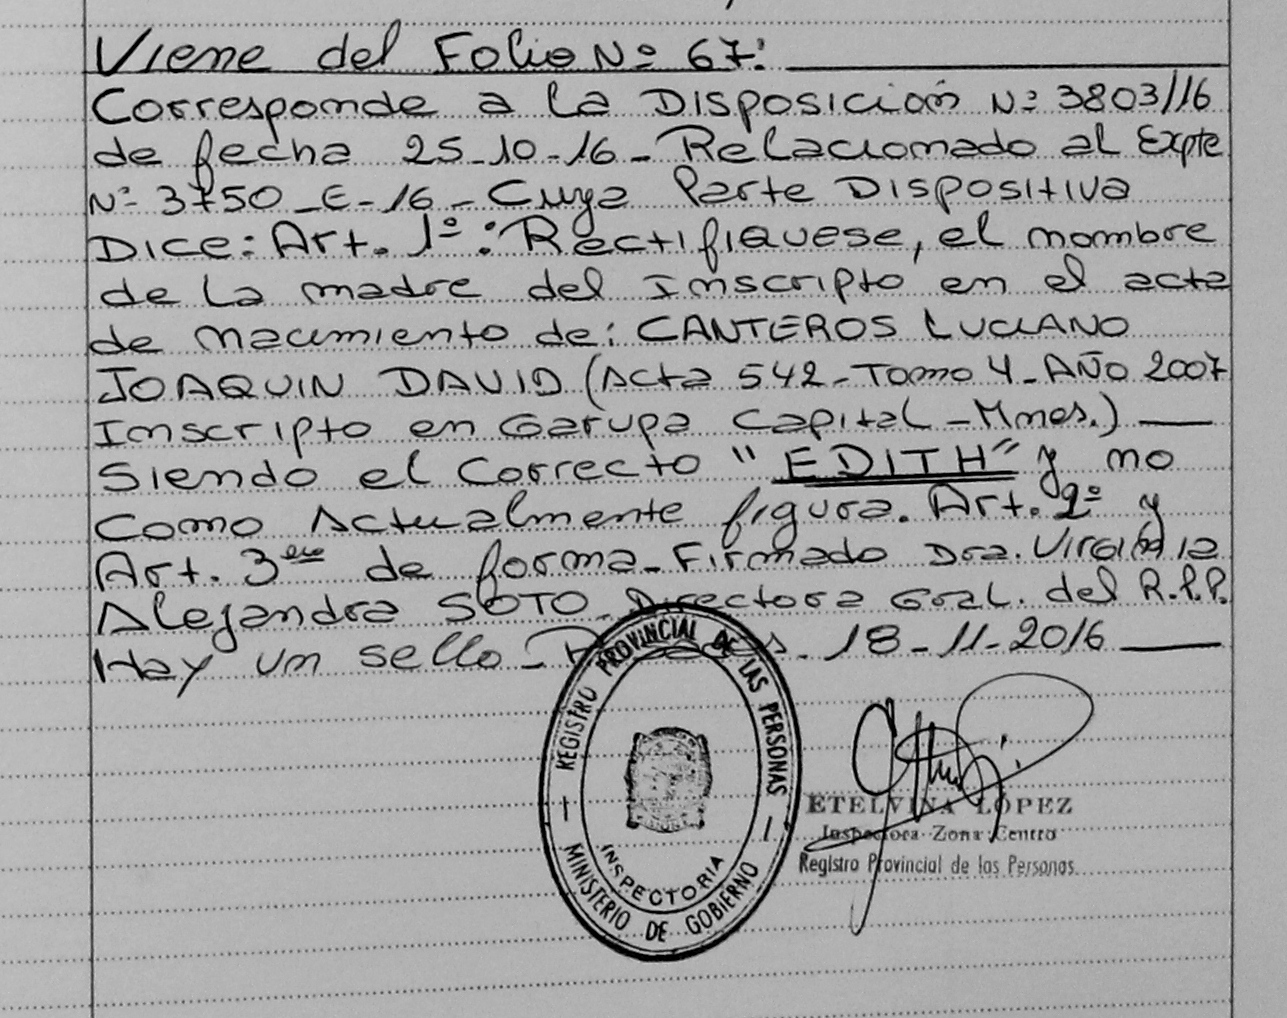 Viene del Folio Nº 67:
Corresponde a la Disposición Nº 3803/16
de fecha 25-10-16- Relacionado al Expte
Nº 3750-E-16- Cuya Parte Dispositiva
Dice: Art. 1º: Rectifiquese, el nombre
de la madre del Inscripto en el acta
de nacimiento de: CANTEROS LUCIANO
JOAQUIN DAVID (Acta 542-Tomo 4-AÑO 2007
Inscripto en Garupa Capital-Mnes.)
Siendo el Correcto "EDITH" y no
Como Actualmente figura. Art. 2º y
Art. 3ero de forma-Firmado Dra. Virginia
Alejandra SOTO-Directora Gral. del R.P.P.
Hay un sello- 18-11-2016
REGISTRO PROVINCIAL DE LAS PERSONAS
INSPECTORIA
MINISTERIO DE GOBIERNO
ETELVINA LOPEZ
Inspectora Zona Centro
Registro Provincial de las Personas